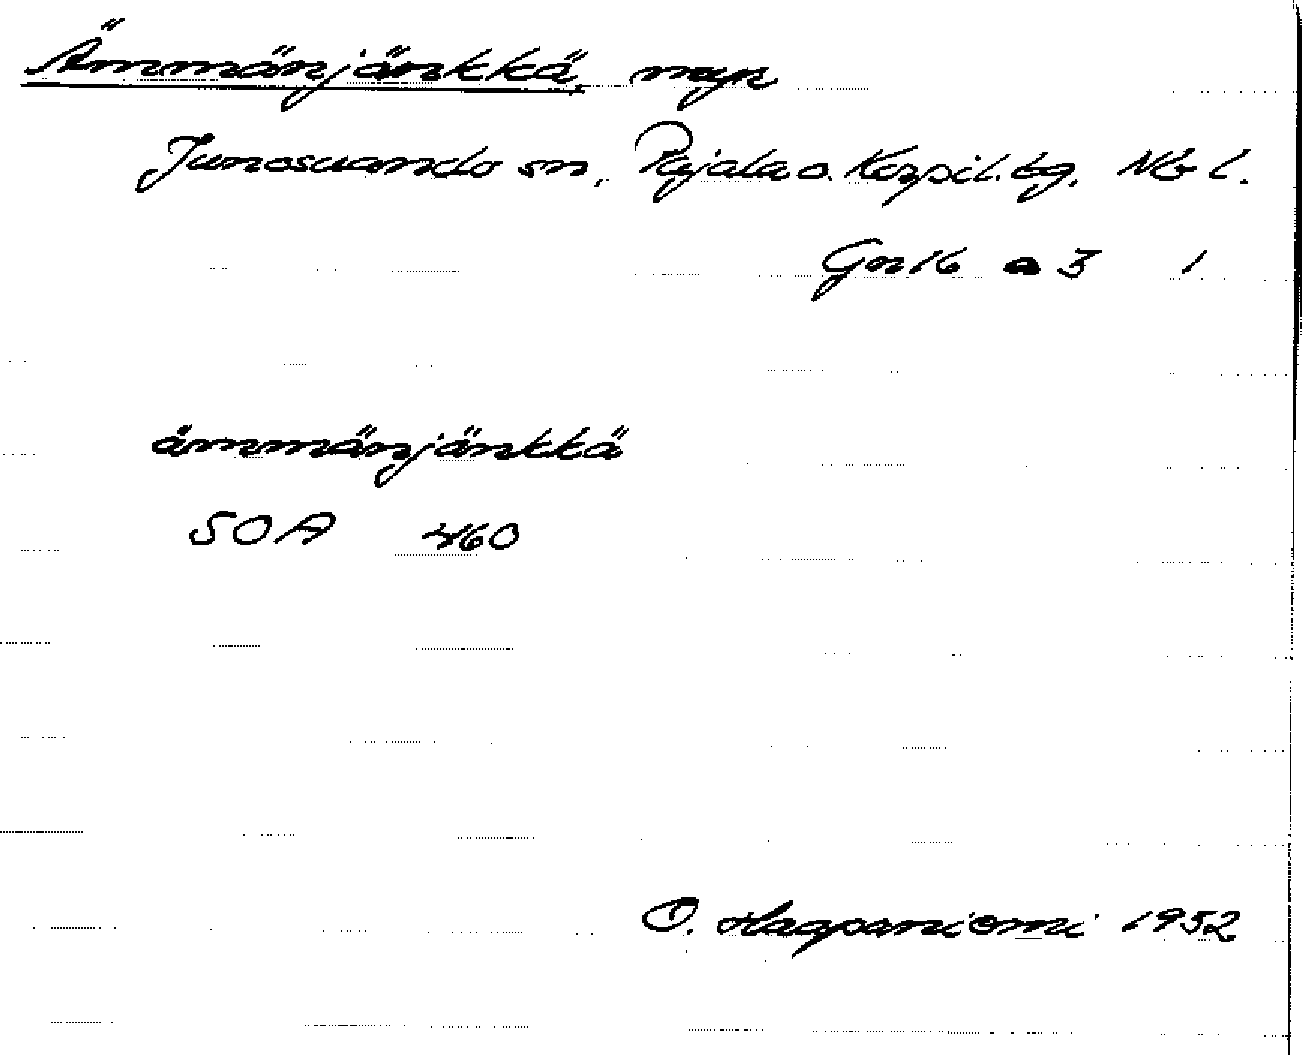 Ämmänjänkkä, myr
Junosuando sn, Pajala o. Korpil. tg. Nb l.
Gn16 a 3 1
ämmänjänkkä
SOA 460
O. Haapaniemi 1952